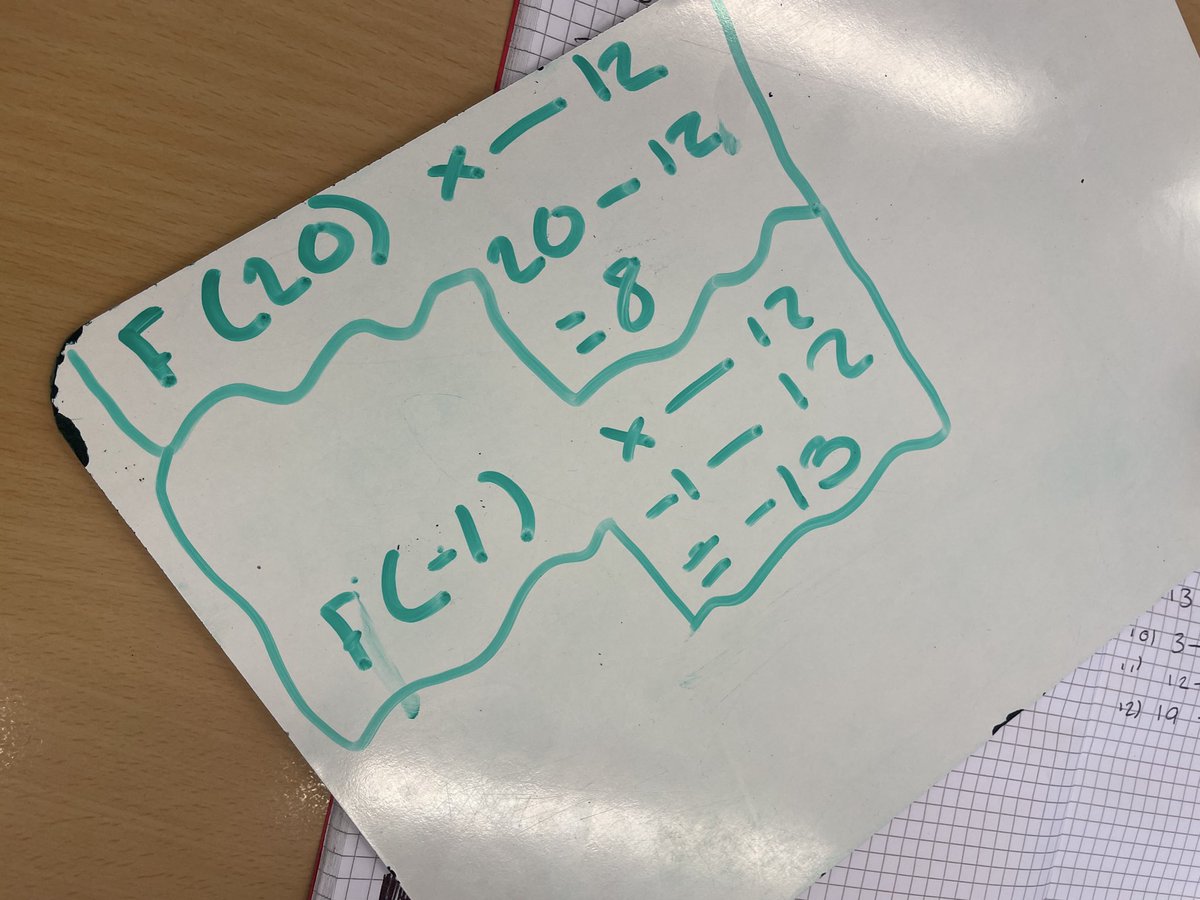 F(20) x - 12
20 - 12
= 8
F(-1) x - 12
-1 - 12
= -13
13
10) 3-
11) 12-
12) 19